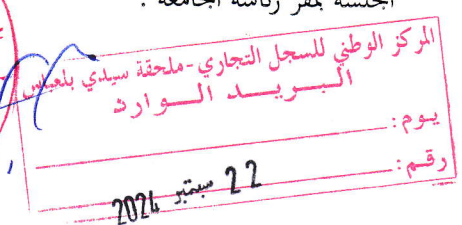 الجلسة بمقر رئاسة الجامعة .
المركز الوطني للسجل التجاري-ملحقة سيدي بلعباس
البريــد الــوارد
يـوم:
رقـم:
22 سبتمبر 2024